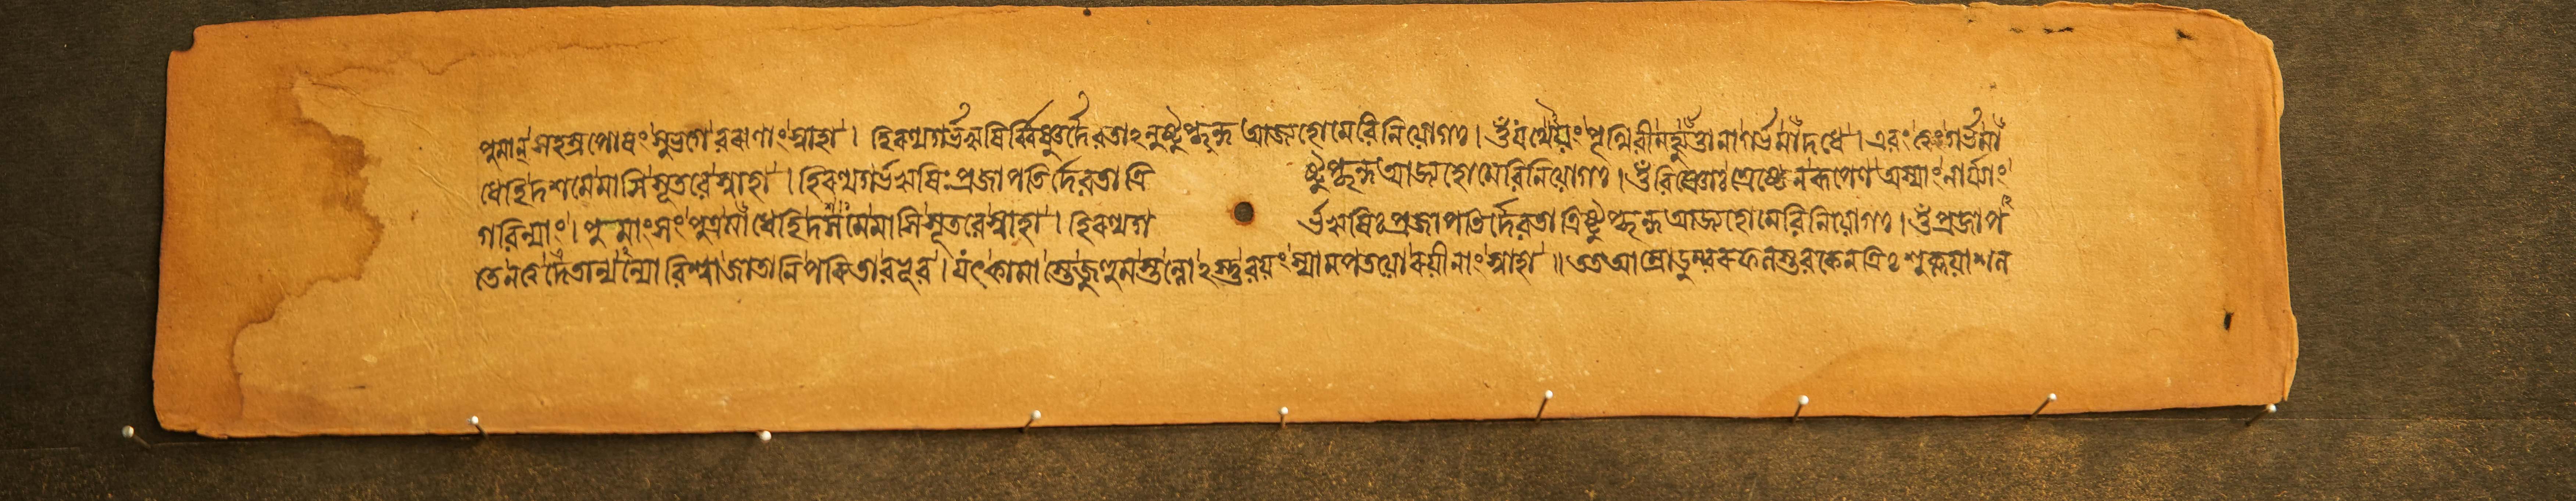 পুমান্ সহস্রপোষং সুভগে ররাণাং স্বাহা । হিরণ্যগর্ভঋষির্ব্বিষ্ণুর্দেৱতাঽনুষ্টুপ্ছন্দ আজ্যহোমেৱিনিয়োগঃ । ওঁ যথেয়ং পৃথিৱী মহ্যুত্তানা গর্ভমাঁদধে । এৱং গর্ভমাঁ
ধেহি দশমেমাসি সূতৱে স্বাহা । হিরণ্যগর্ভঋষিঃ প্রজাপতির্দেৱতাত্রি ষ্টুপ্ছন্দ আজ্যহোমেৱিনিয়োগঃ । ওঁ ৱিষ্ণোঃ শ্রেষ্ঠেন ৰূপেণ অস্যাং নার্য্যাং
গৱিন্যাং । পুমাংসং পুত্রমাঁধেহি দশমেমাসি সূতৱে স্বাহা । হিরণ্যগ র্ভঋষিঃ প্রজাপতির্দেৱতা ত্রিষ্টুপ্ছন্দ আজ্যহোমেৱিনিয়োগঃ । ওঁ প্রজাপ
তে ন ত্বদেতান্যন্যো ৱিশ্বা জাতানি পৰিতা বভূৱ । যৎকামাস্তে জুহুমস্তন্নোঽস্তু ৱয়ং স্যাম পতয়ো ৰয়ীনাং স্বাহা ॥ তত আম্রোডুম্বর ফল ত্রিঃ শুক্লয়া শল